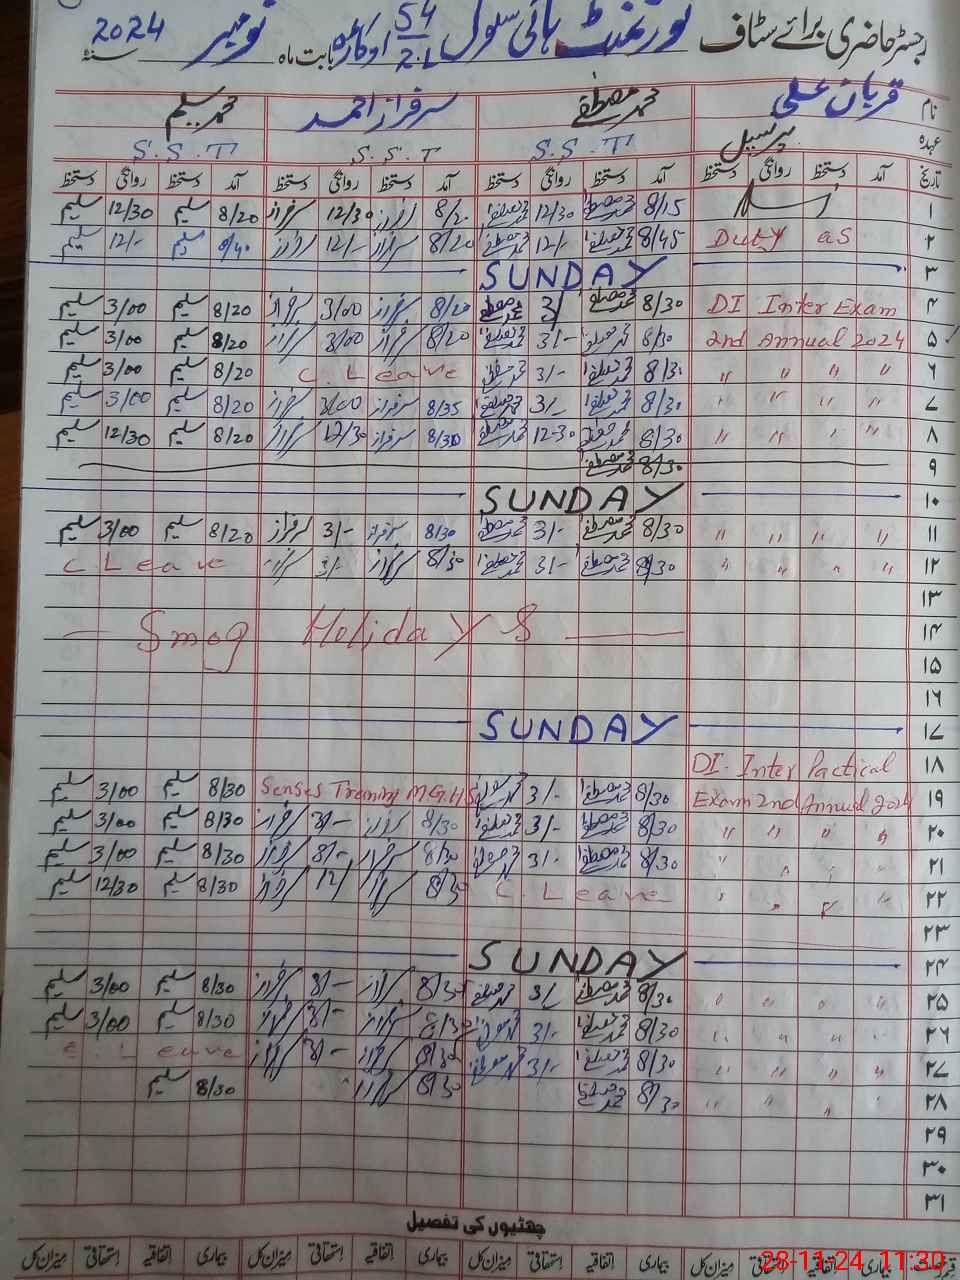 رجسٹر حاضری برائے سٹاف گورنمنٹ ہائی سکول 54/2.L اوکاڑہ بابت ماہ نومبر 2024 سنہ
نام قربان علی محمد مصطفٰے سرفراز احمد محمد سلیم
عہدہ پرنسپل S.S.T S.S.T S.S.T
تاریخ آمد دستخط روانگی دستخط آمد دستخط روانگی دستخط آمد دستخط روانگی دستخط آمد دستخط روانگی دستخط
۱ 8/15 محمد مصطفٰے 12/30 محمد مصطفٰے 8/20 سرفراز 12/30 سرفراز 8/20 سلیم 12/30 سلیم
۲ Duty as 8/45 محمد مصطفٰے 12/- محمد مصطفٰے 8/20 سرفراز 12/- سرفراز سلیم 12/- سلیم
۳ SUNDAY
۴ DI Inter Exam 8/30 محمد مصطفٰے 3/ محمد مصطفٰے 8/20 سرفراز 3/00 سرفراز 8/20 سلیم 3/00 سلیم
۵ 2nd Annual 2024 8/30 محمد مصطفٰے 3/- محمد مصطفٰے 8/20 سرفراز 3/00 سرفراز 8/20 سلیم 3/00 سلیم
۶ " " " " 8/30 محمد مصطفٰے 3/- محمد مصطفٰے C. Leave 8/20 سلیم 3/00 سلیم
۷ " " " " 8/30 محمد مصطفٰے 3/- محمد مصطفٰے 8/35 سرفراز 3/00 سرفراز 8/20 سلیم 3/00 سلیم
۸ " " " " 8/30 محمد مصطفٰے 12-30 محمد مصطفٰے 8/30 سرفراز 12/30 سرفراز 8/20 سلیم 12/30 سلیم
۹ 8/30 محمد مصطفٰے
۱۰ SUNDAY
۱۱ " " " " 8/30 محمد مصطفٰے 3/- محمد مصطفٰے 8/30 سرفراز 3/- سرفراز 8/20 سلیم 3/00 سلیم
۱۲ " " " " 8/30 محمد مصطفٰے 3/- محمد مصطفٰے 8/30 سرفراز 3/- سرفراز C. Leave
۱۳
۱۴ Smog Holidays
۱۵
۱۶
۱۷ SUNDAY
۱۸ DI. Inter Pactical
۱۹ Exam 2nd Annual 2024 8/30 محمد مصطفٰے 3/- محمد مصطفٰے Senses Training M.G.H.S 8/30 سلیم 3/00 سلیم
۲۰ " " " " 8/30 محمد مصطفٰے 3/- محمد مصطفٰے 8/30 سرفراز 3/- سرفراز 8/30 سلیم 3/00 سلیم
۲۱ " " " " 8/30 محمد مصطفٰے 3/- محمد مصطفٰے 8/30 سرفراز 3/- سرفراز 8/30 سلیم 3/00 سلیم
۲۲ " " " " C. Leave 8/30 سرفراز 12/ سرفراز 8/30 سلیم 12/30 سلیم
۲۳
۲۴ SUNDAY
۲۵ " " " " 8/30 محمد مصطفٰے 3/ محمد مصطفٰے 8/30 سرفراز 3/- سرفراز 8/30 سلیم 3/00 سلیم
۲۶ " " " " 8/30 محمد مصطفٰے 3/- محمد مصطفٰے 8/30 سرفراز 3/- سرفراز 8/30 سلیم 3/00 سلیم
۲۷ " " " " 8/30 محمد مصطفٰے 3/- محمد مصطفٰے 8/30 سرفراز 3/- سرفراز C. Leave
۲۸ " " " " 8/30 محمد مصطفٰے 8/30 سرفراز 8/30 سلیم
۲۹
۳۰
۳۱
چھٹیوں کی تفصیل
بیماری اتفاقیہ استحقاقی میزان کل بیماری اتفاقیہ استحقاقی میزان کل بیماری اتفاقیہ استحقاقی میزان کل بیماری اتفاقیہ استحقاقی میزان کل
28-11-24, 11:30